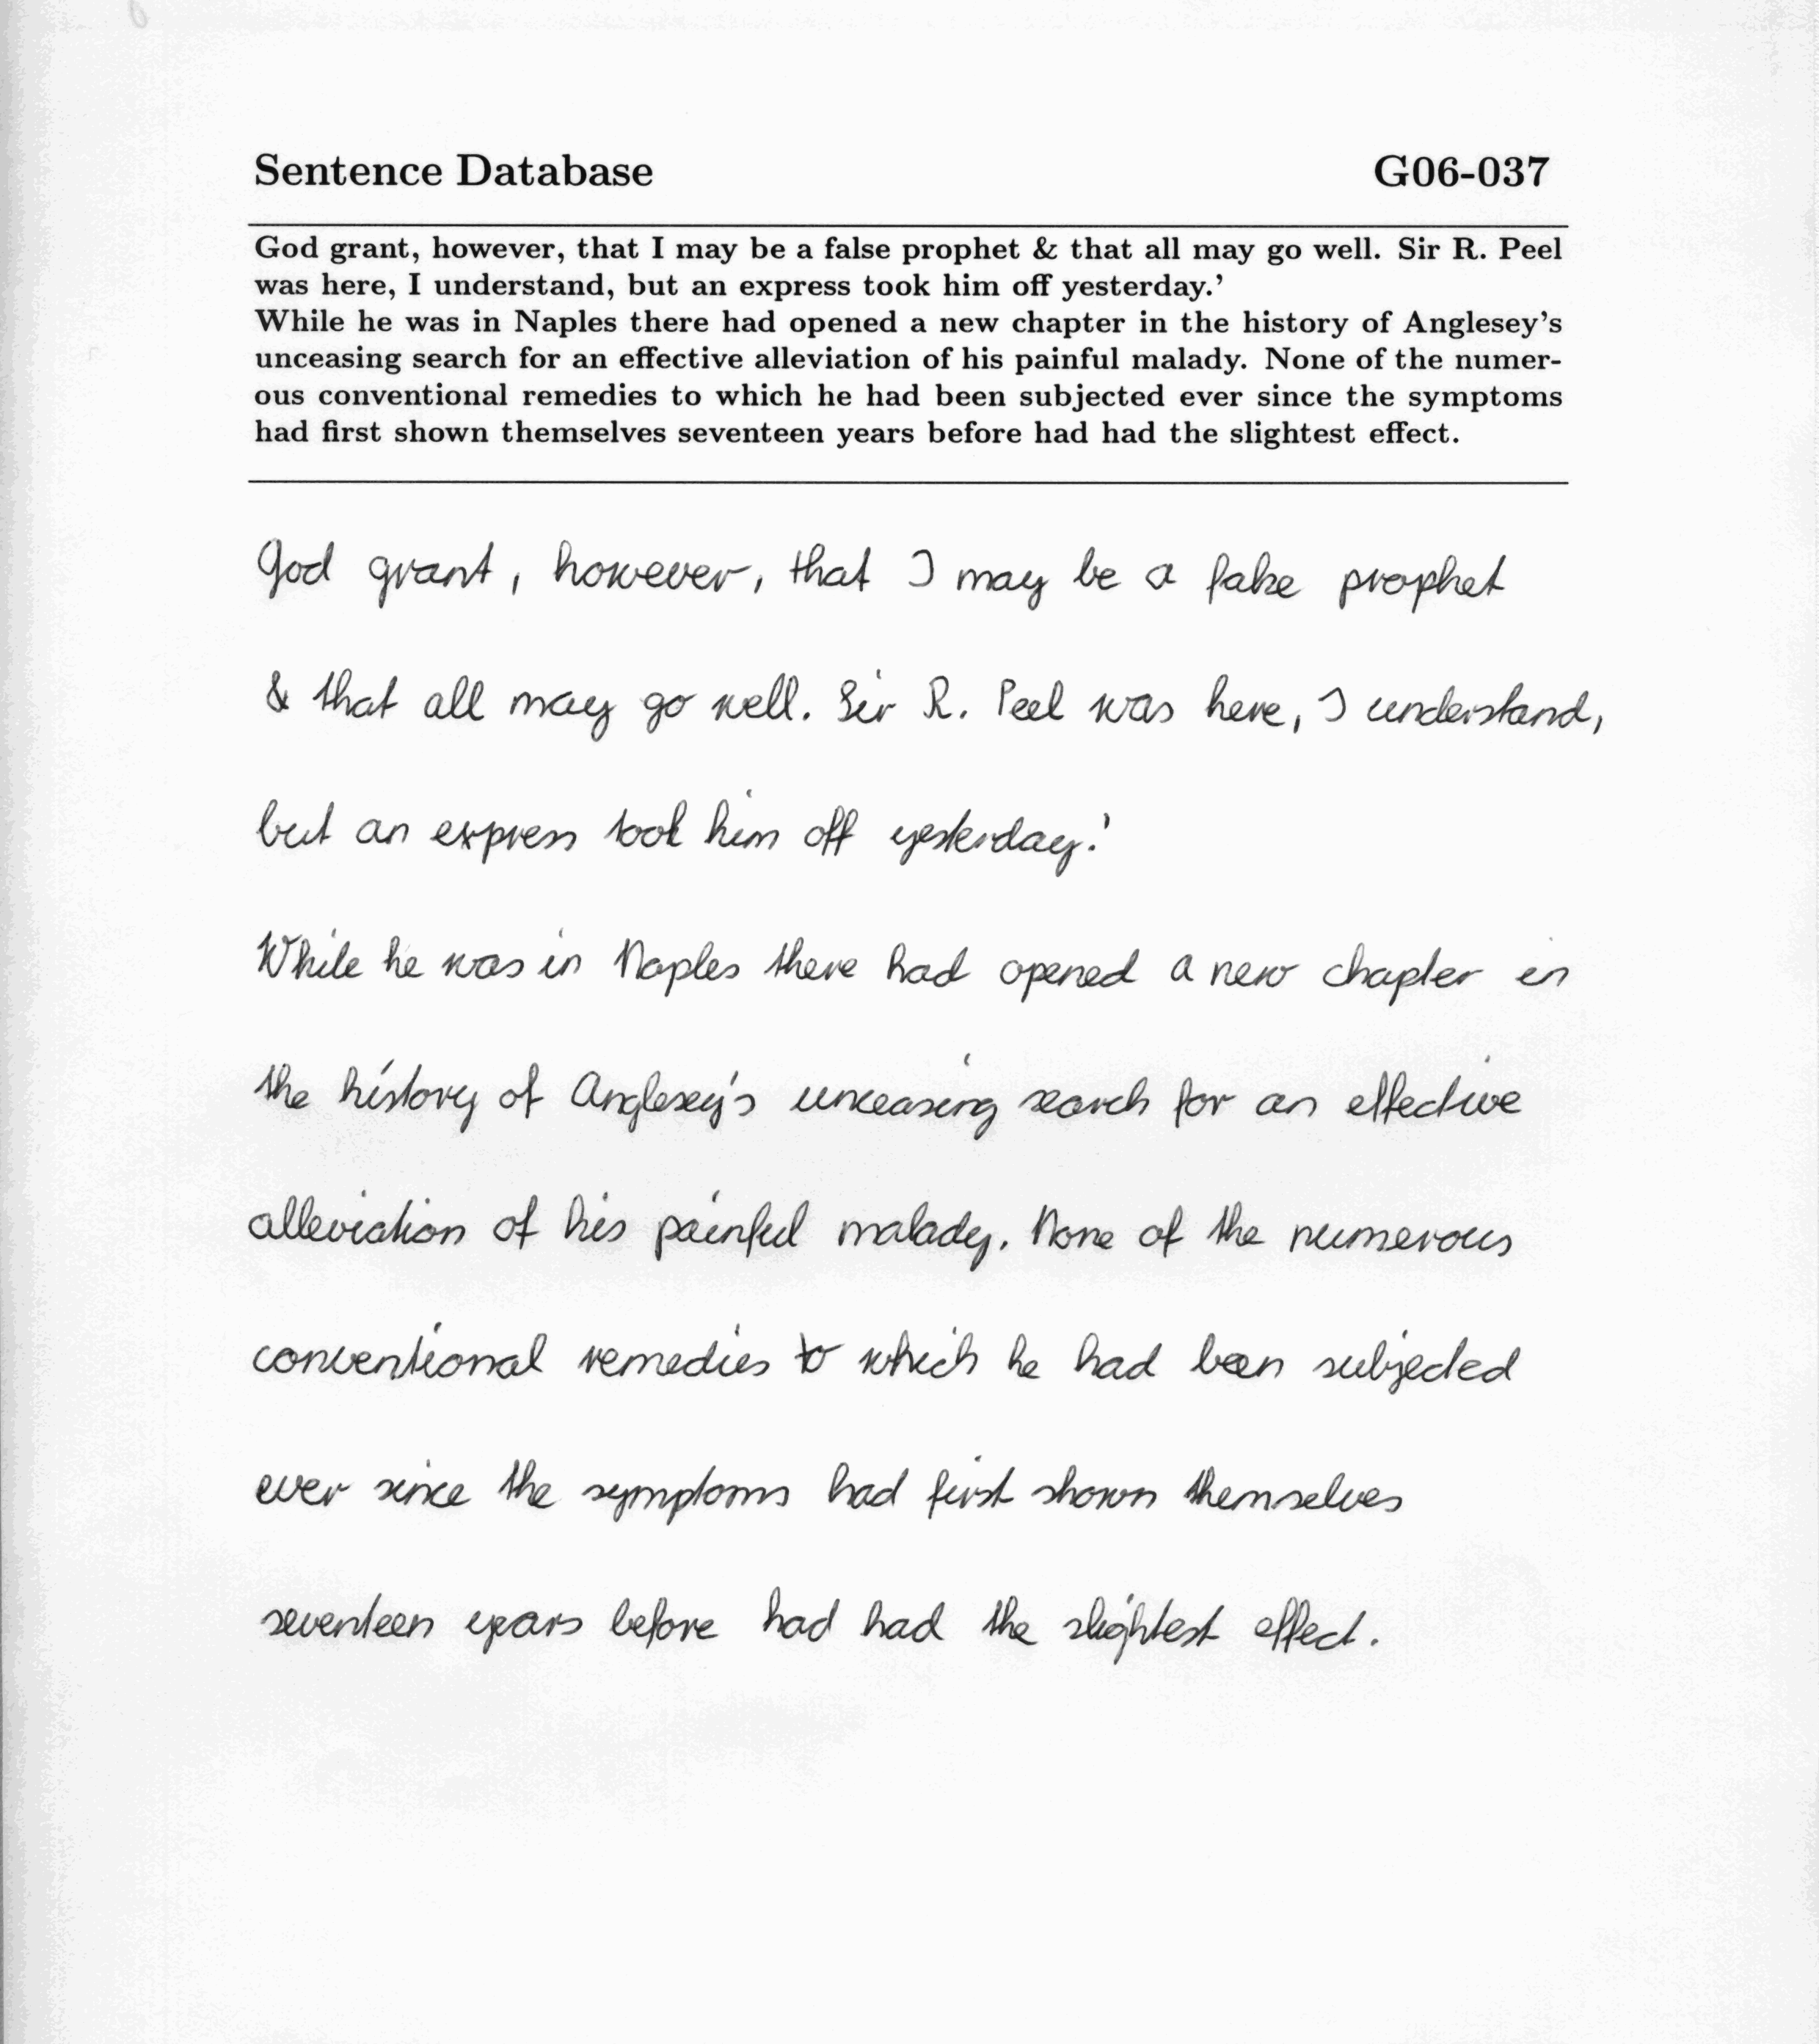 Sentence Database G06-037
God grant, however, that I may be a false prophet & that all may go well. Sir R. Peel
was here, I understand, but an express took him off yesterday.'
While he was in Naples there had opened a new chapter in the history of Anglesey's
unceasing search for an effective alleviation of his painful malady. None of the numer-
ous conventional remedies to which he had been subjected ever since the symptoms
had first shown themselves seventeen years before had had the slightest effect.
God grant, however, that I may be a false prophet
& that all may go well. Sir R. Peel was here, I understand,
but an express took him off yesterday.'
While he was in Naples there had opened a new chapter in
the history of Anglesey's unceasing search for an effective
alleviation of his painful malady. None of the numerous
conventional remedies to which he had been subjected
ever since the symptoms had first shown themselves
seventeen years before had had the slightest effect.